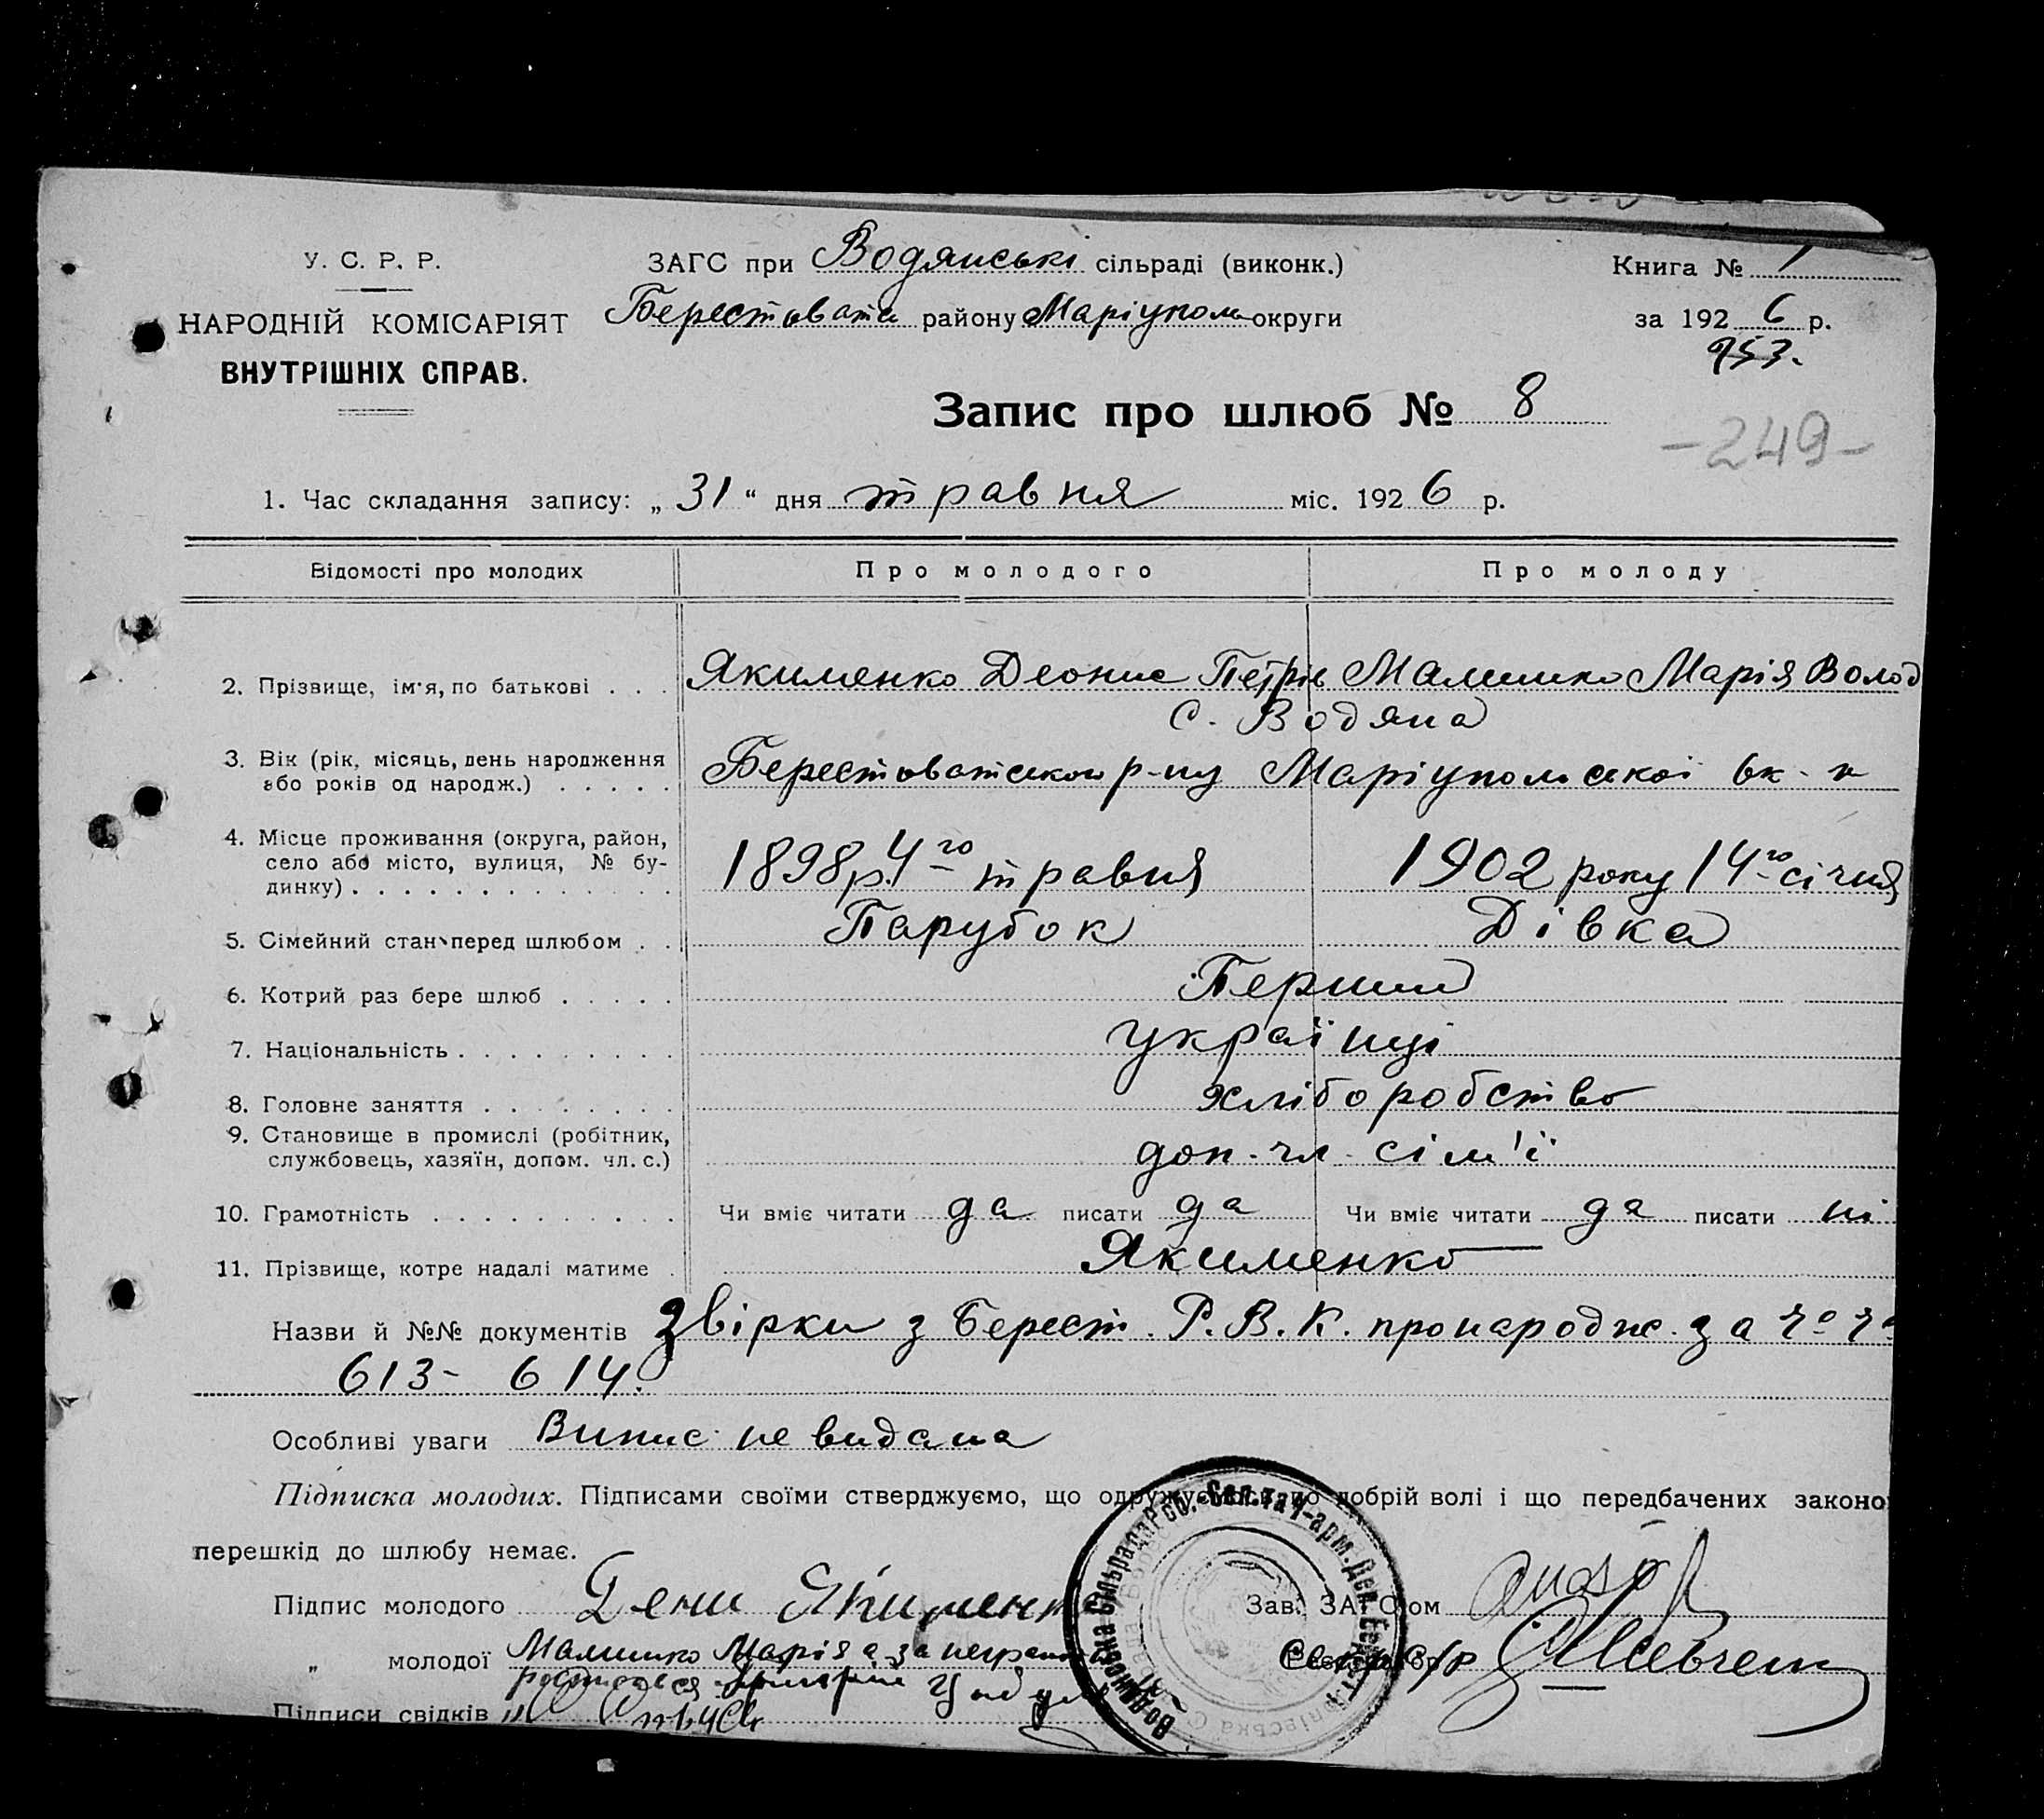 У. С. Р. Р.
НАРОДНІЙ КОМІСАРІЯТ
ВНУТРІШНІХ СПРАВ.
ЗАГС при Водянські сільраді (виконк.)
Берестовата району Маріуполь округи
Книга № 1
за 1926 р.
953.
Запис про шлюб № 8
-249-
1. Час складання запису: „31“ дня травня міс. 1926 р.
Відомості про молодих Про молодого Про молоду
2. Прізвище, ім'я, по батькові . . . Якименко Деонис Петрів Малишко Марія Волод
с. Водяна
3. Вік (рік, місяць, день народження
або років од народж.) . . . . . Берестоватського р-ну Маріупольської ок-и
4. Місце проживання (округа, район,
село або місто, вулиця, № бу-
динку) . . . . . . . . . . . . . 1898 р. 4го травня 1902 року 14го січня
5. Сімейний стан перед шлюбом . . Парубок Дівка
6. Котрий раз бере шлюб . . . . . Перший
7. Національність . . . . . . . . . українці
8. Головне заняття . . . . . . . . хліборобство
9. Становище в промислі (робітник,
службовець, хазяїн, допом. чл. с.) доп. чл. сім'ї
10. Грамотність . . . . . . . . . . Чи вміє читати да писати да Чи вміє читати да писати ні
11. Прізвище, котре надалі матиме . Якименко
Назви й №№ документів Звірки з Берест. Р.В.К. про народж. за
613- 614.
Особливі уваги Випис не видана
Підписка молодих. Підписами своїми стверджуємо, що одружуємось по добрій волі і що передбачених законо
перешкід до шлюбу немає.
Підпис молодого Дени Якименко
Зав. ЗАГСом
„ молодої Малишко Марія а за неграмот
Секретар Шевчен
Підписи свідків